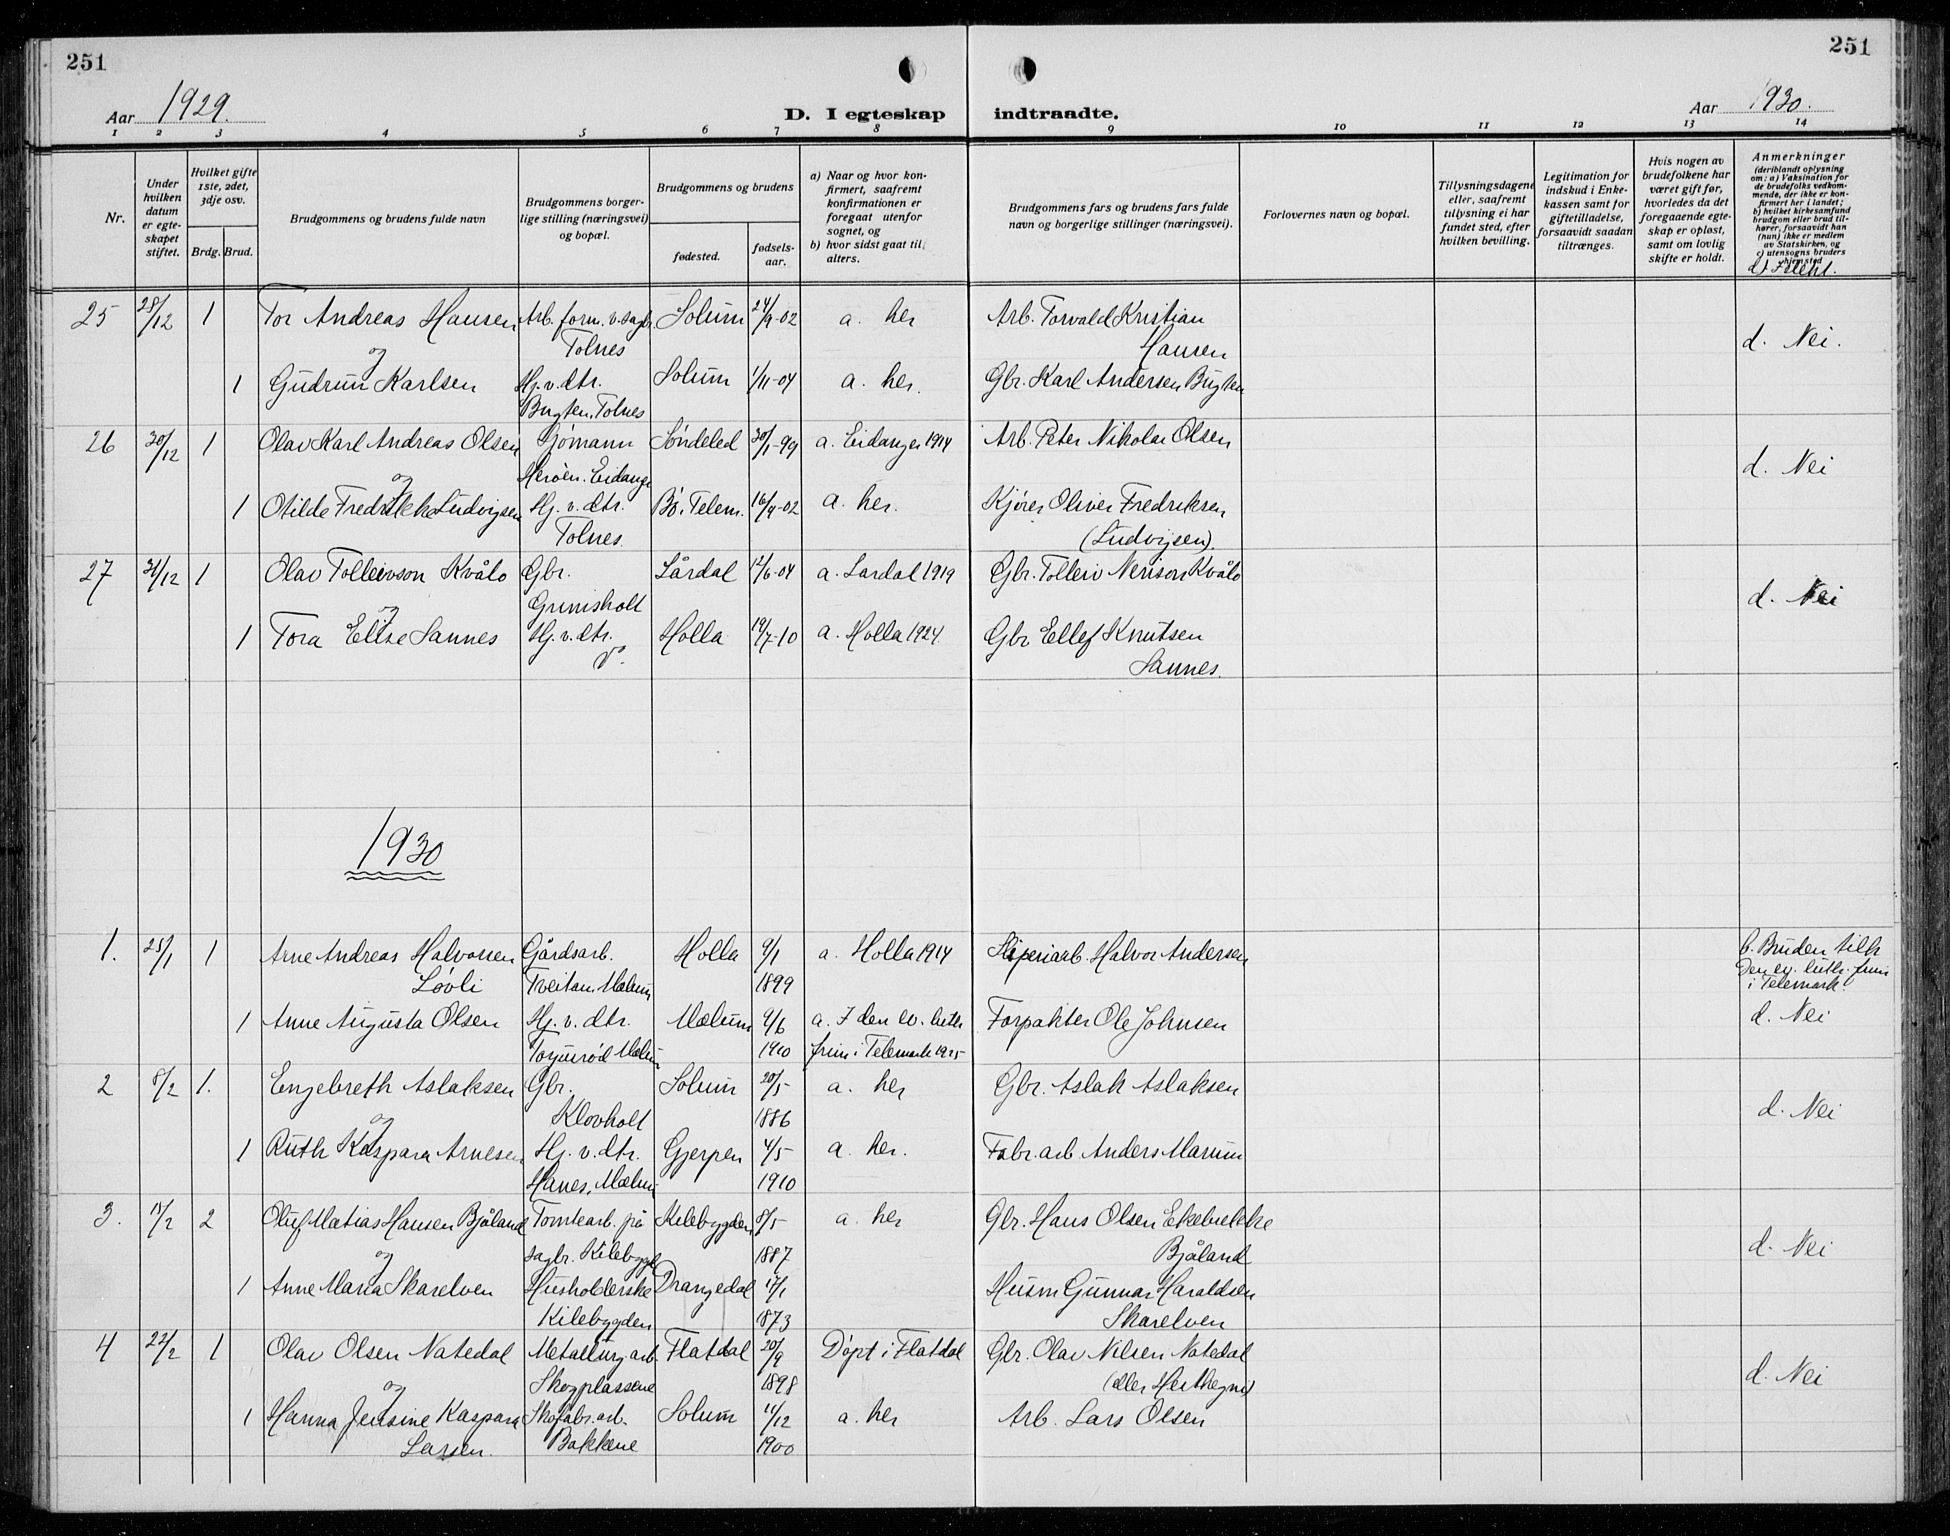 251
251
Aar 1929.
D. I egteskap indtraadte.
Aar 1930.
1 2 3 4 5 6 7 8 9 10 11 12 13 14
Nr.
Under hvilken datum er egteskapet stiftet.
Hvilket gifte 1ste, 2det, 3dje osv.
Brdg. Brud.
Brudgommens og brudens fulde navn
Brudgommens borgerlige stilling (næringsvei) og bopæl.
Brudgommens og brudens
fødested.
fødselsaar.
a) Naar og hvor konfirmert, saafremt konfirmationen er foregaat utenfor sognet, og
b) hvor sidst gaat til alters.
Brudgommens fars og brudens fars fulde navn og borgerlige stillinger (næringsvei).
Forlovernes navn og bopæl.
Tillysningsdagene eller, saafremt tillysning ei har fundet sted, efter hvilken bevilling.
Legitimation for indskud i Enkekassen samt for giftetilladelse, forsaavidt saadan tiltrænges.
Hvis nogen av brudefolkene har været gift før, hvorledes da det foregaaende egteskap er opløst, samt om lovlig skifte er holdt.
Anmerkninger (deriblandt oplysning om: a) Vaksination for de brudefolks vedkommende, der ikke er konfirmert her i landet; b) hvilket kirkesamfund brudgom eller brud tilhører, forsaavidt han (hun) ikke er medlem av Statskirken, og c) utensogns bruders hjemsted
25 28/12 1 Tor Andreas Hansen Arb. form. v. sagbr. Solum 24/9-02 a. her Arb. Torvald Kristian
og Tolnes Hansen d. Nei.
1 Gudrun Karlsen Hj. v. dtr. Solum 1/11-04 a. her. Gbr. Karl Andersen Bugten
Bugten, Tolnes
26 30/12 1 Olav Karl Andreas Olsen Sjømann Søndeled 30/1-99 a. Eidanger 1914 Arb. Peter Nikolai Olsen
og Herøen. Eidanger d. Nei
1 Otilde Fredrikke Ludvigsen Hj. v. dtr. Bø. Telem. 16/9-02 a. her. Kjører Oliver Fredriksen
Tolnes. (Ludvigsen).
27 31/12 1 Olav Tolleivson Kvålo Gbr. Lårdal 12/6-04 a. Lardal 1919 Gbr. Tolleiv Nerison Kvålo
og Grinisholt d. Nei
1 Tora Elise Sannes Hj. v. dtr. Holla 19/7-10 a. Holla 1924 Gbr Ellef Knutsen
Sannes.
1930
1. 25/1 1 Arne Andreas Halvorsen Gårdsarb. Holla 9/1 a. Holla 1914 Sliperiarb. Halvor Andersen b. Bruden tilh
Løvli Tveitan, Mælum 1899 Den ev. luth. frim i Telemark.
1 Anne Augusta Olsen Hj. v. dtr. Mælum 9/6 a. I den ev. luth Forpakter Ole Johnsen d. Nei
Torjusrød Mælum 1910 frim i Telemark 1925
2 8/2 1. Engebreth Aslaksen Gbr. Solum 20/5 a. her Gbr. Aslak Aslaksen
og Klovholt 1886 d. Nei
1 Ruth Kaspara Arnesen Hj. v. dtr. Gjerpen 4/5 a. her. Fabr. arb Anders Marum
Hanes, Mælum 1910
3. 15/2 2 Oluf Matias Hansen Bjåland Tomtearb. på Kilebygden 8/5 a. her Gbr. Hans Olsen Ekebrekke
og sagbr. Kilebygd 1887 Bjåland d. Nei
1 Anne Maria Skarelven Husholderske Drangedal 17/1 Husm Gunnar Haraldsen
Kilebygden 1873 Skarelven
4 22/2 1 Olav Olsen Natedal Metallurg. arb. Flatdal 20/9 Døpt i Flatdal Gbr. Olav Nilsen Natedal
og Skogplassene 1898 (eller Heithegni) d. Nei
1 Hanna Jensine Kaspara Skofabr. arb. Solum 11/12 a. her Arb. Lars Olsen
Larsen. Bakkene 1900